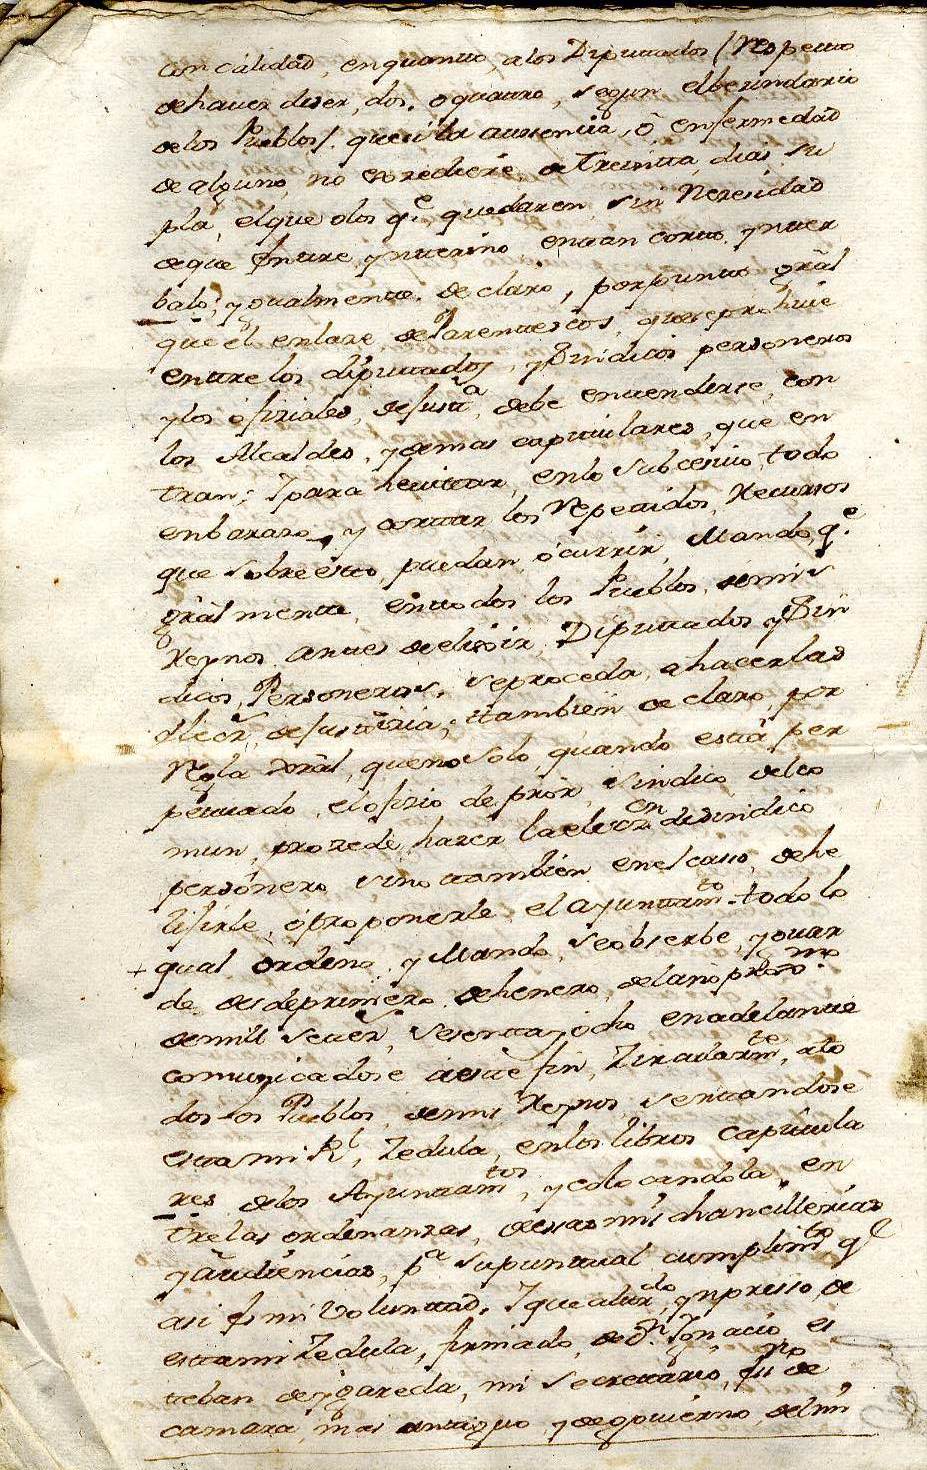 con calidad, enquanto, alos Diputtados (Respectto
dehaver deser, dos, o quattro, segun elbezindario
delos Pueblos/. quesi la ausencia, ó enfermedad
de alguno, no exzediere, de Treintta, dias, su
pla, elque olos q.e quedaren, sin Nezesidad
deque Entre, ynterino entan cortto, ynter
balo; ygualmentte, declaro, porpuntto grâl
que el enlaze, deParentescos, quesepro huie
entre los diputtados, ySindicos personeros
ylos ofiziales, deJustt.a, debe entenderse, con
los Alcaldes, ydemas capitulares, que en
tran; Ypara hevittar, enlo subcesivo, todo
enbarazo, y corttar los Repettidos, Recursos
que sobre estto, puedan, ócurrir, Mando, q.e
grâlmentte, enttodos los Pueblos, demis
Reynos, anttes de elixir, Diputtados ySin
dicos, Personeros, seproceda, ahacerlas
Elecz.s, deJustizia; ttambien declaro, por
Regla Grâl, queno solo, quando està per
pettuado, el ofizio de prôr, sindico delco
mun, prozede, hazer la elecz.on desindico
personero, sino ttambien enelcasso, dehe
lixirle, óproponerle, el ayunttam.to - todo lo
qual ordeno, y Mando, seobserbe, yguar
de, desdeprimero, dehenero, delaño prox.mo
demill settez.s, sesentta yocho enadelantte
comunicadose aeste fin, Zircularm.te, ato
dos los Pueblos, demis Reynos, senttandose
esttami R.l, Zedula, enlos libros capitula
res delos Ayunttam.tos, ycolocandola, en
tre las ordenanzas, deesas mis chancillerias
yaudiencias, p.a supunttual cumplim.to q.e
asi Es mi Voluntad, Yque altraslado, ynpresso, de
esttami Zedula, firmado, de D.n Ygnacio, es
teban deygareda, mi secrettario, es.no de
camara, mas antiguo, ydegovierno, delmi